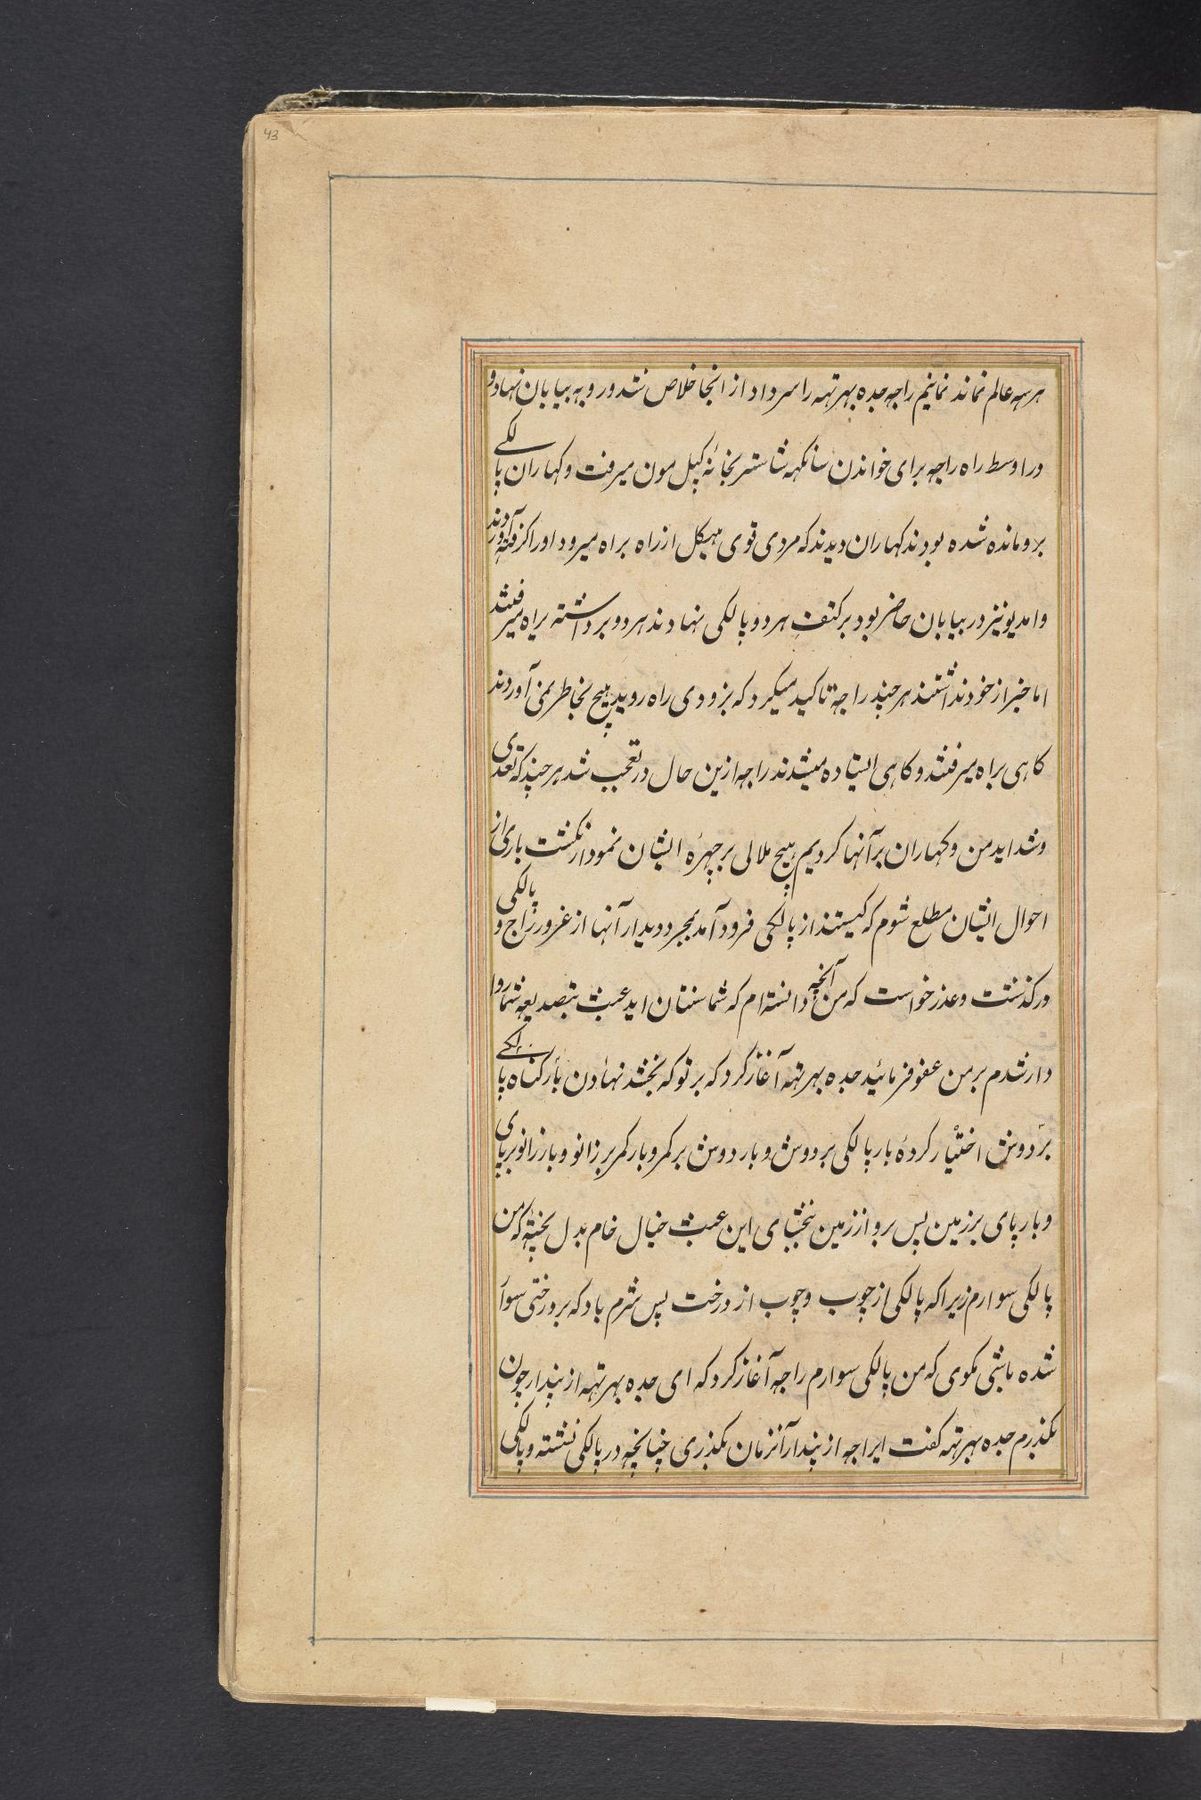 43
هر سه عالم نماند نماییم راجه جده بهرتهه را سر داد از انجا خلاص شد و رو به بیابان نهاد و
در اوسط راه راجه برای خواندن سانکهه شاستر بخانهٔ کپل مون میرفت و کهاران پالکی
بر و مانده شده بودند کهاران دیدند که مردی قوی هیکل از راه براه میرود او را کرفته آوردند
و امدیو نیز در بیابان حاضر بود بر کتف هر دو پالکی نهادند هر دو برداشته براه میرفتند
اما خبر از خود نداشتند هر چند راجه تاکید میکرد که بزودی راه روید هیچ بخاطر نمی آوردند
کاهی براه میرفتند و کاهی ایستاده میشدند راجه ازین حال در تعجب شد هر چند که تعدی
و شداید من و کهاران بر آنها کردیم هیچ ملالی بر چهرهٔ ایشان نمودار نکشت باری از
احوال ایشان مطلع شوم که کیستند از پالکی فرود آمد بمجرد دیدار آنها از غرور راج و پالکی
در کذشت و عذر خواست که من آنچه دانسته ام که شما سنتان اید عبث بتصدیعه شما روا
دار شدم بر من عفو فرمائید جده بهرتهه آغاز کرد که بر تو که بخشد نهادن بار کناه پالکی
بر دوش اختیار کردهٔ بار پالکی بر دوش و بار دوش بر کمر و بار کمر بر زانو و بار زانو بر پای
و بار پای بر زمین پس برو از زمین ببخشای این عبث خیال خام بدل پختهٔ که من
پالکی سوارم زیرا که پالکی از چوب و چوب از درخت پس شرم باد که بر درختی سوار
شده باشی مکوی که من پالکی سوارم راجه آغاز کرد که ای جده بهرتهه از پندار چون
بکذرم جده بهرتهه کفت ایراجه از پندار آنزمان بکذری چنانچه در پالکی نشسته و پالکی